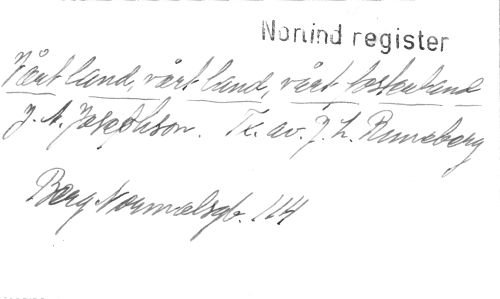 Nonind register
Vårt land, vårt land, vårt fosterland
J. A. Josephson. Tx. av. J. L. Runeberg
Berg Normalsgb. 114